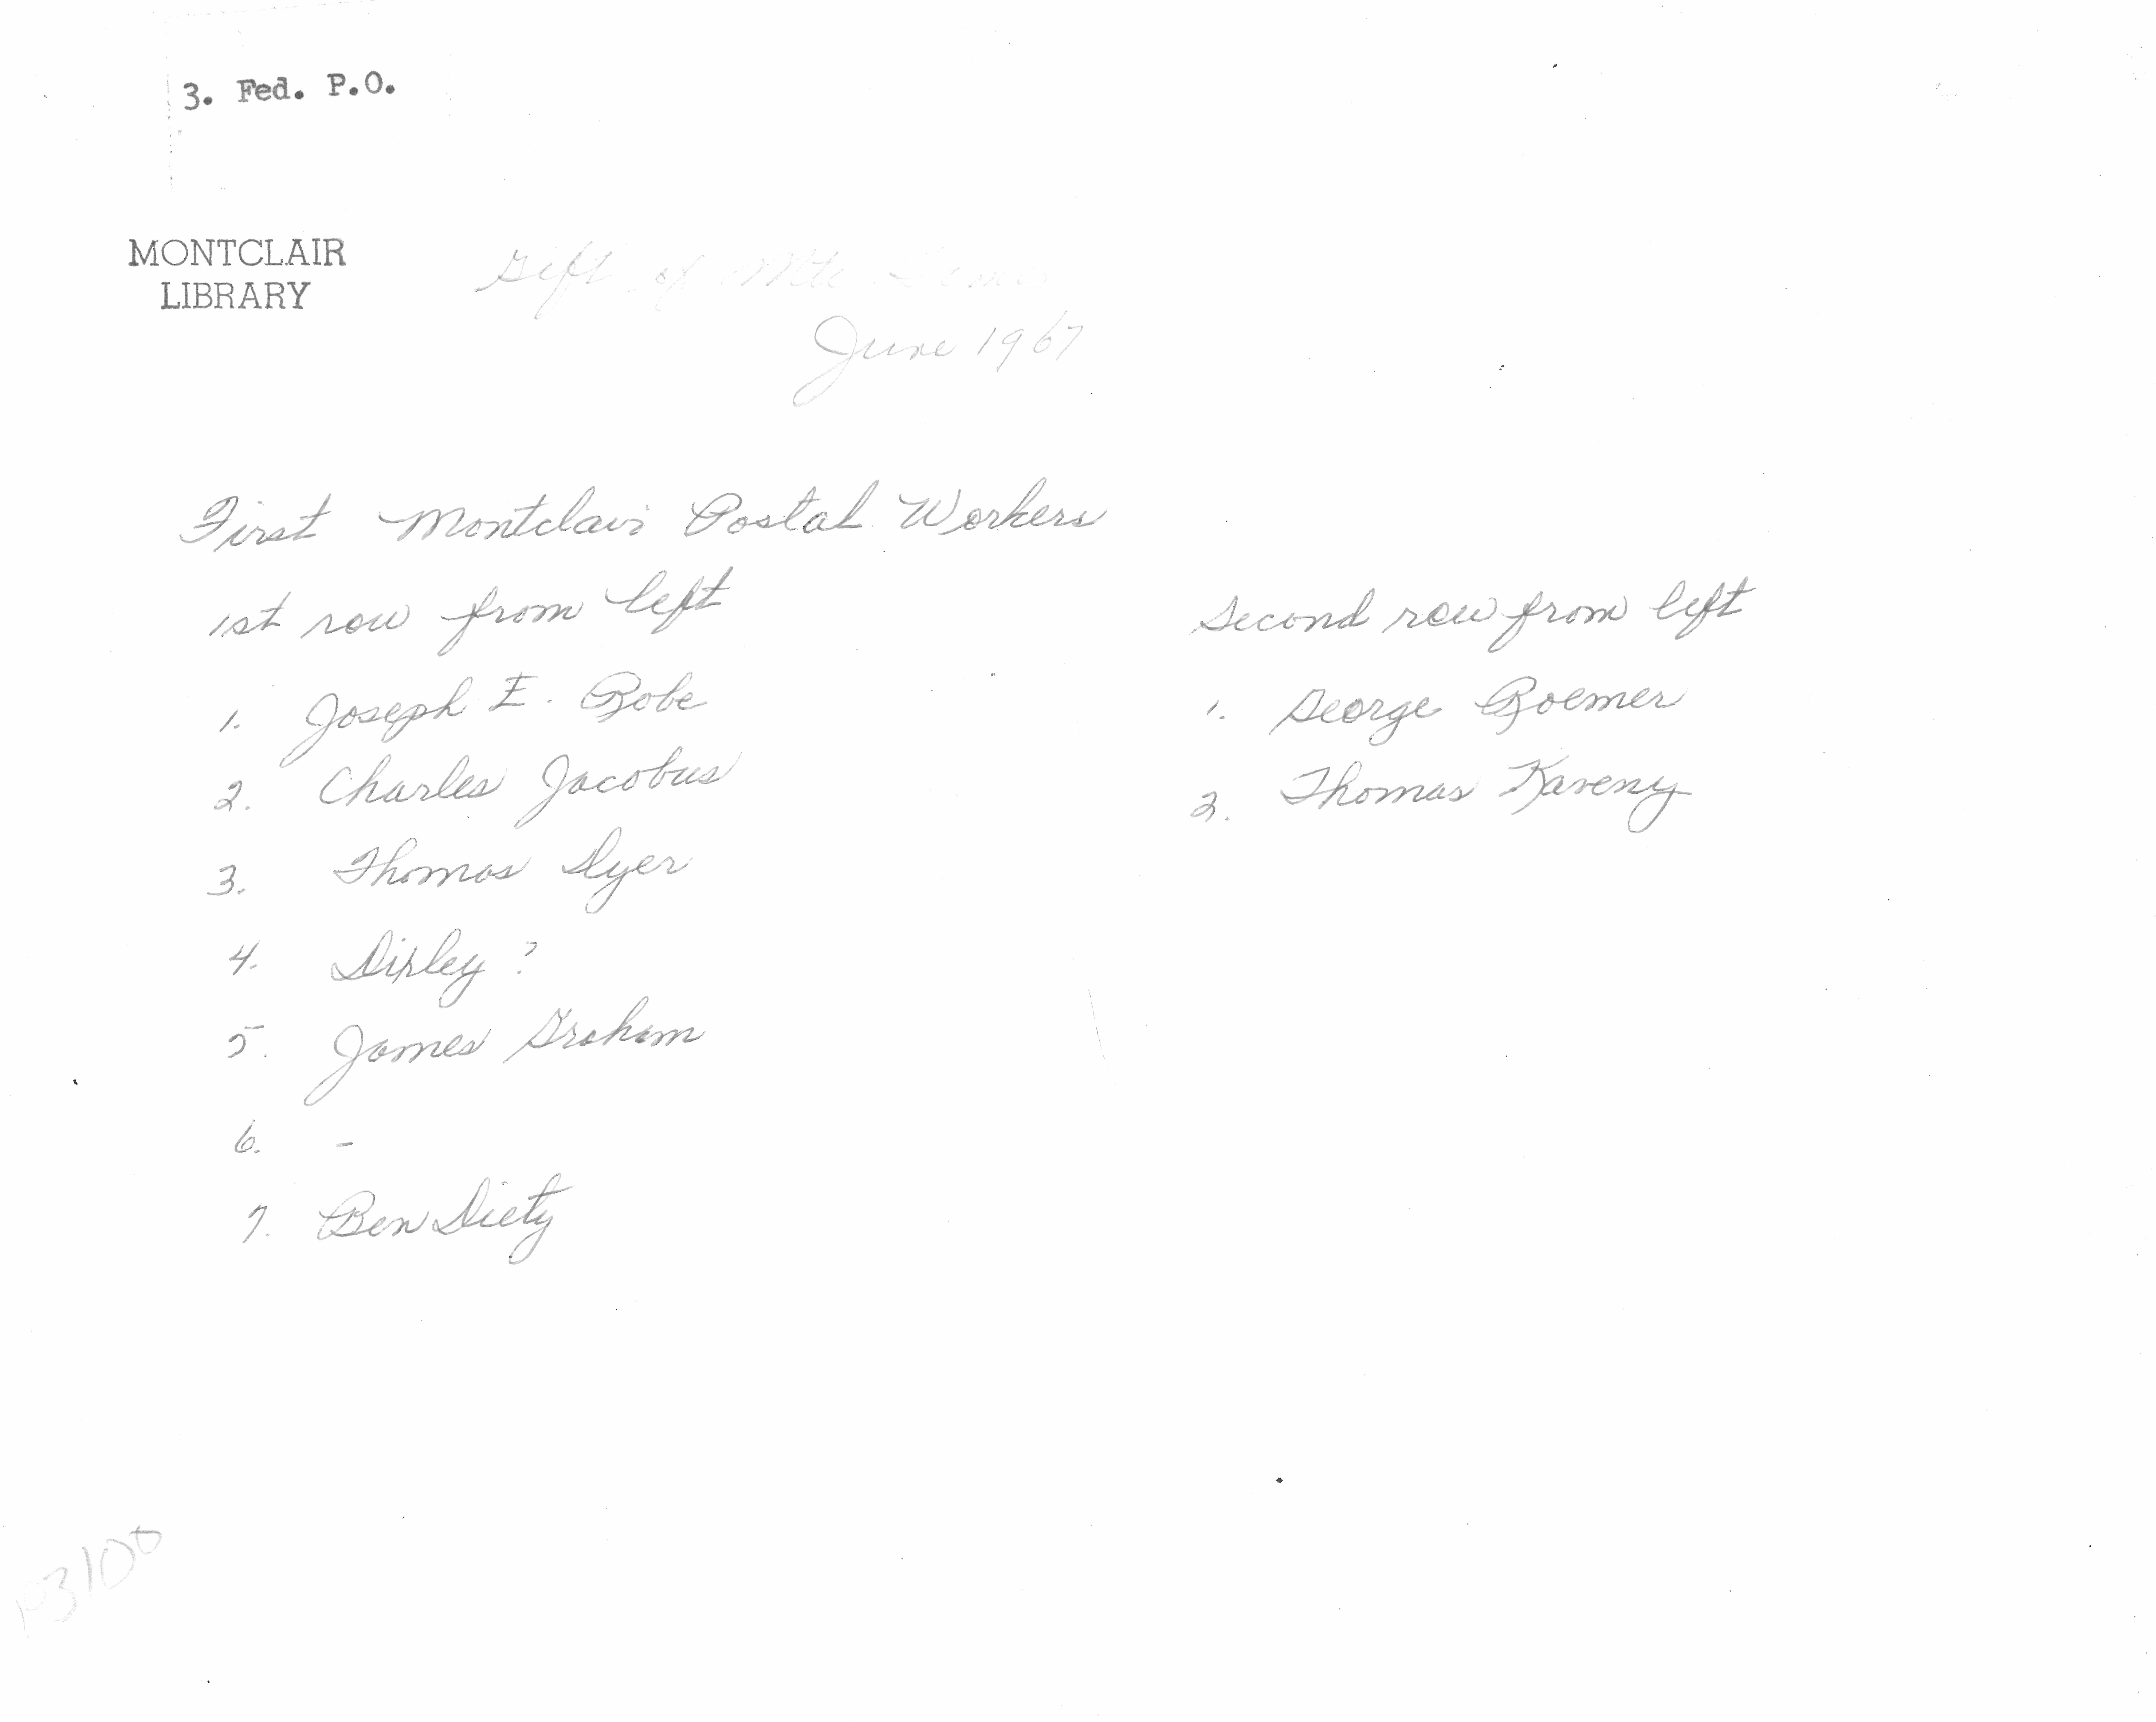 3. Fed. P.O.
MONTCLAIR
LIBRARY
Gift of Mtc
June 1967
First Montclair Postal Workers
1st row from left
1. Joseph E. Robe
2. Charles Jacobus
3. Thomas Dyer
4. Dixley ?
5. James Graham
6. -
7. Ben Diety
second row from left
1. George Roemer
2. Thomas Kaveny
P3100